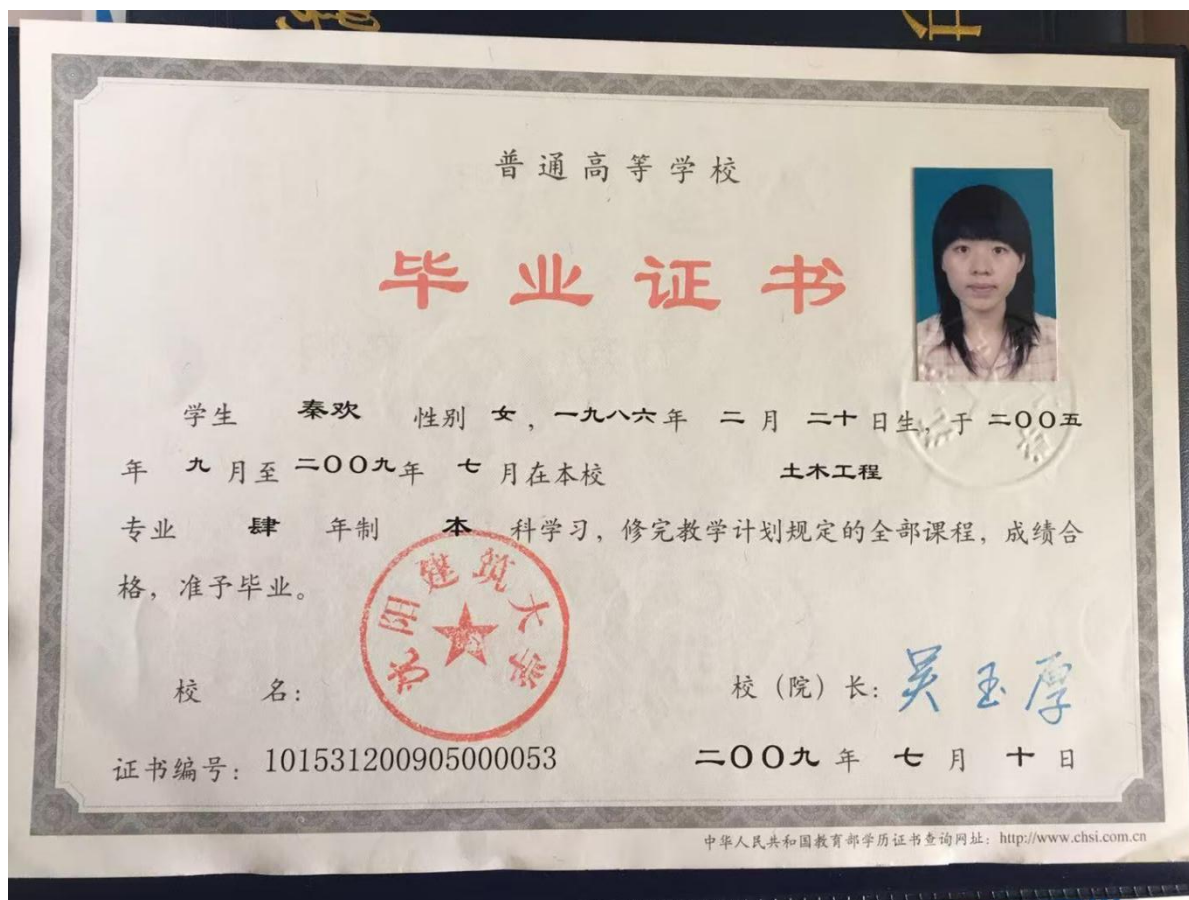 普通高等学校
毕业证书
学生 秦欢 性别 女，一九八六年 二月 二十日生，于 二〇〇五
年 九月至 二〇〇九年 七月在本校 土木工程
专业 肆 年制 本 科学习，修完教学计划规定的全部课程，成绩合
格，准予毕业。
沈阳建筑大学
校 名： 校（院）长：吴玉厚
证书编号：101531200905000053 二〇〇九年 七月 十日
中华人民共和国教育部学历证书查询网址：http://www.chsi.com.cn